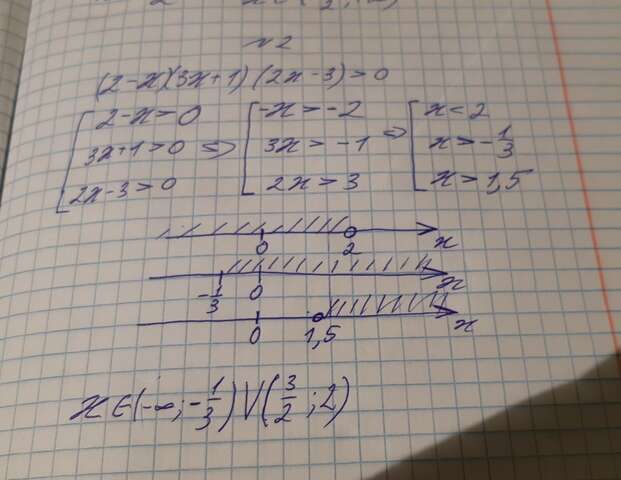 №2
(2-x)(3x+1)(2x-3)>0
[2-x>0 [-x>-2 [x<2
3x+1>0 => 3x>-1 => x>-1/3
2x-3>0 2x>3 x>1,5
0 2 x
-1/3 0 x
0 1,5 x
x∈(-∞;-1/3)∪(3/2;2)